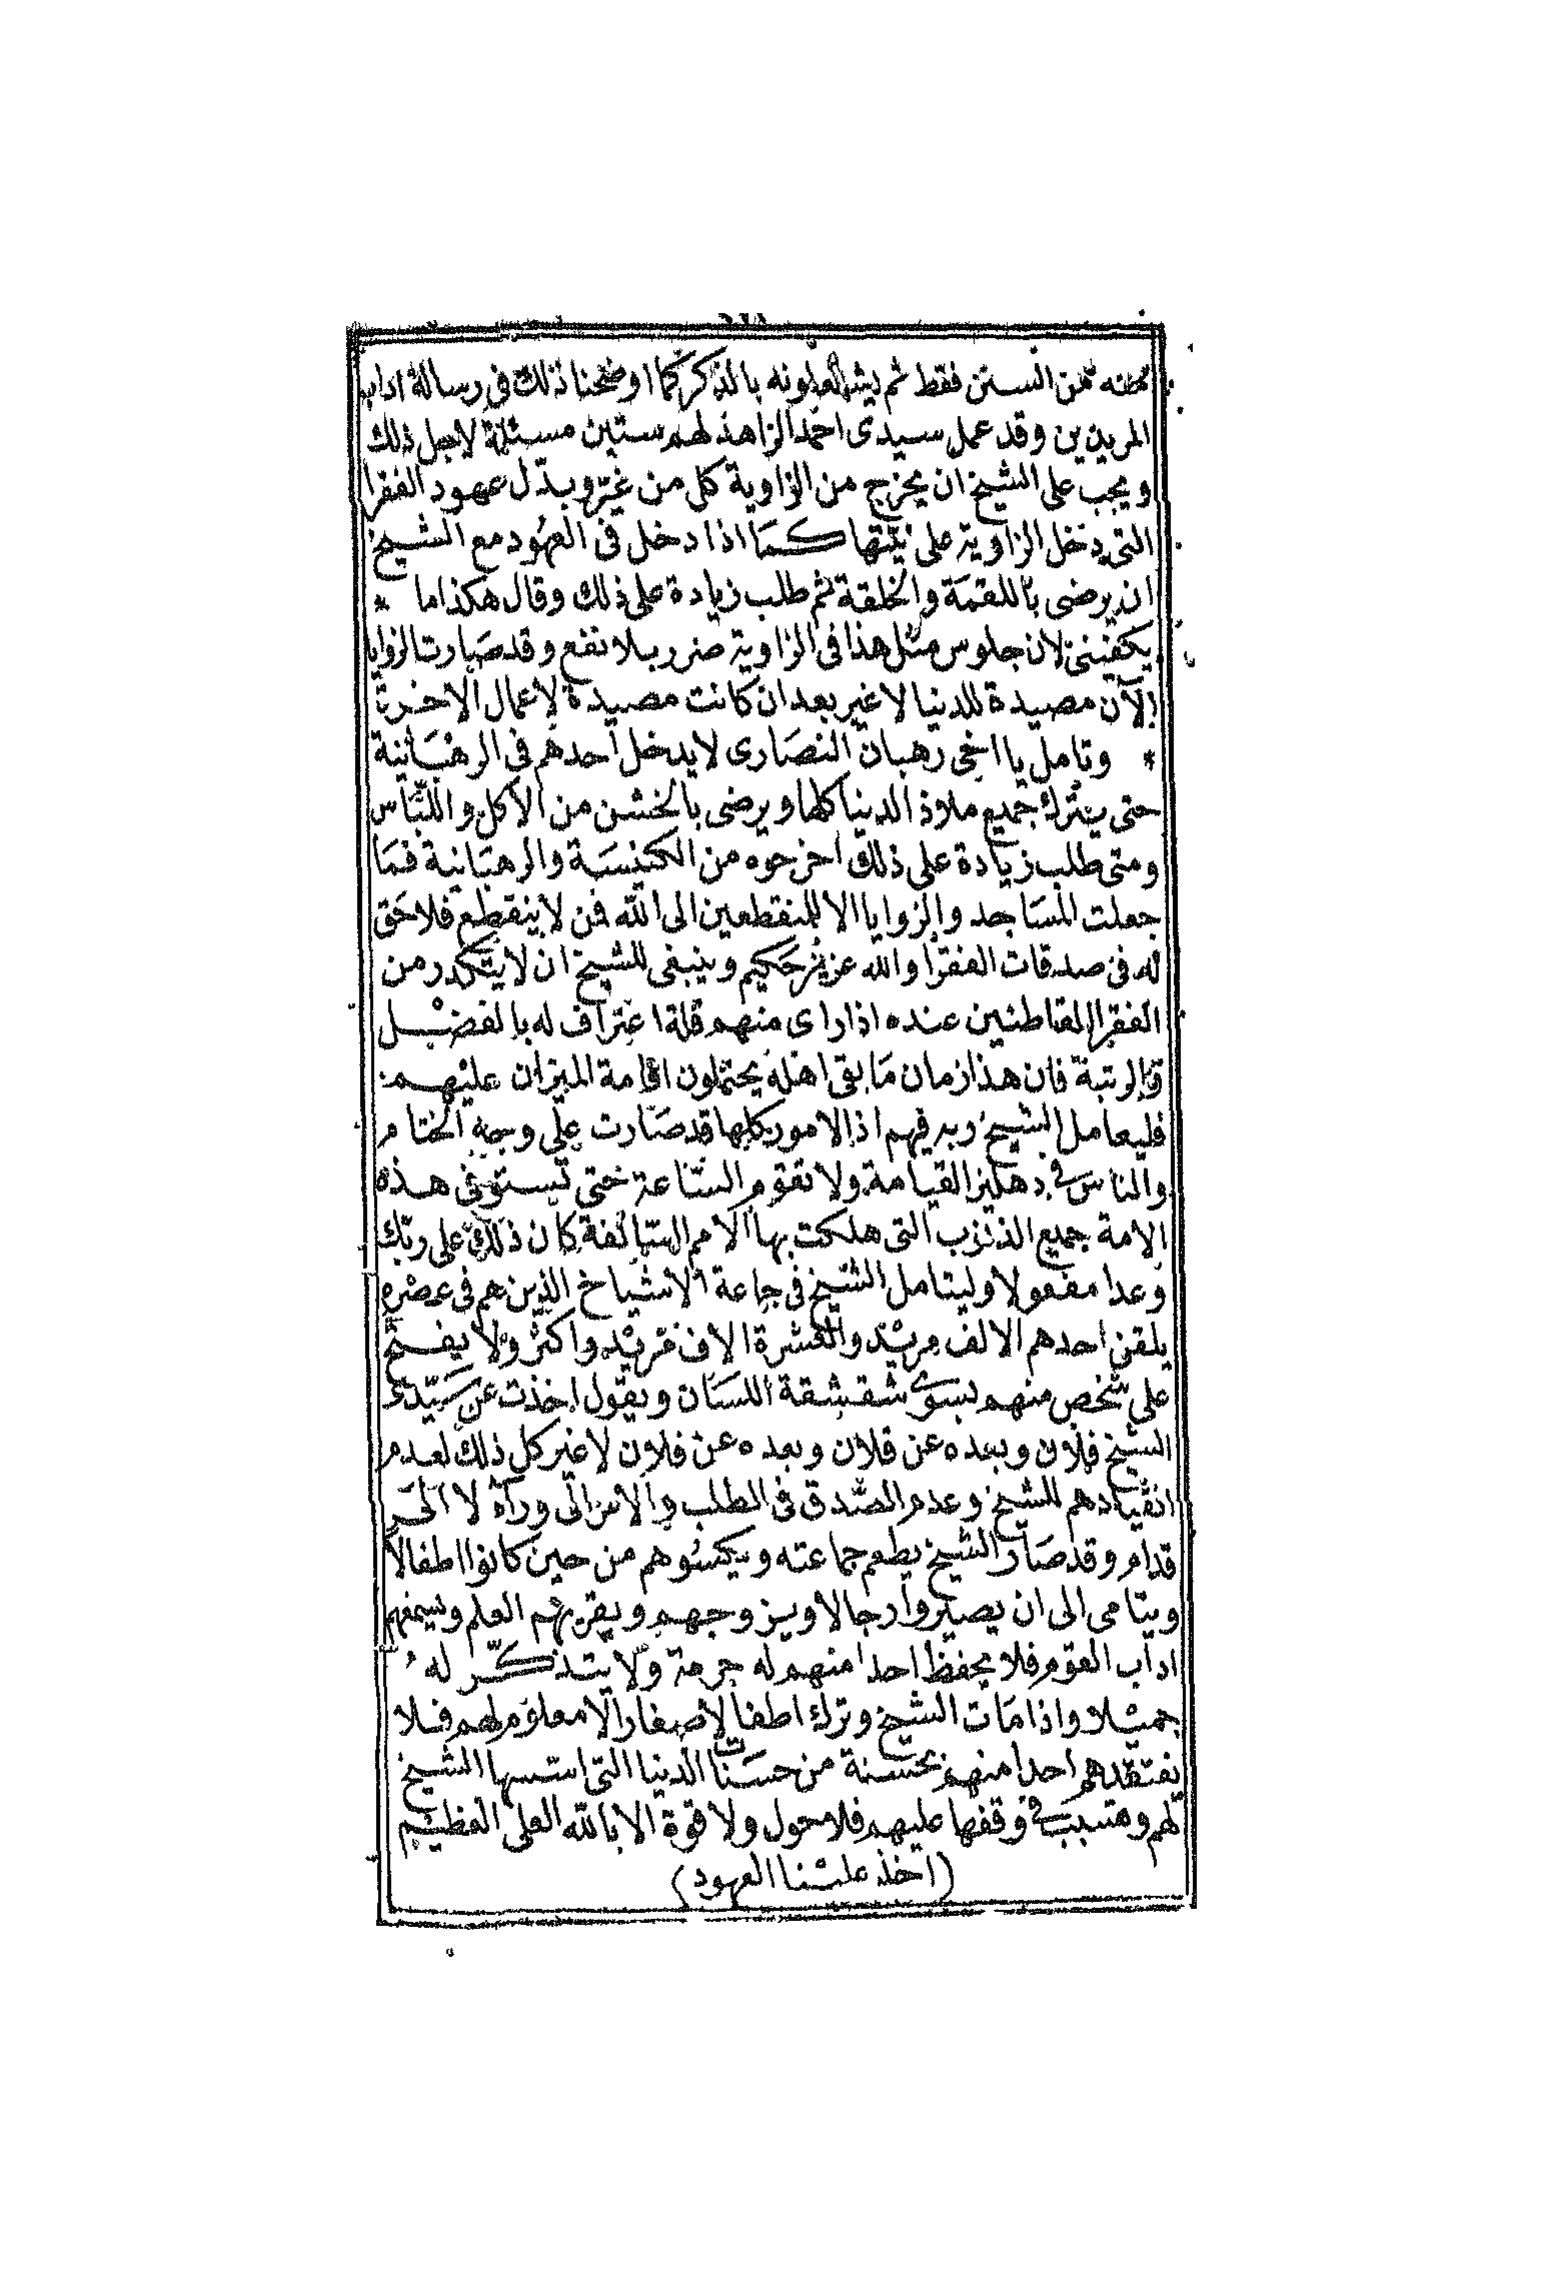 من السنن فقط ثم يشغلونه بالذكر كما اوضحنا ذلك فى رسالة اداب
المريدين وقد عمل سيدى احمد الزاهد لهم ستين مسئلة لاجل ذلك
ويجب على الشيخ ان يخرج من الزاوية كل من غير وبدّل عهود الفقرا
التى دخل الزاوية على نيتها كما اذا دخل فى العهود مع الشيخ
ان يرضى باللقمة والخلقة ثم طلب زيادة على ذلك وقال هكذا ما *
يكفينى لان جلوس مثل هذا فى الزاوية ضرر بلا نفع وقد صارت الزوايا
الآن مصيدة للدنيا لا غير بعد ان كانت مصيدة لاعمال الاخرة
* وتامل يا اخى رهبان النصارى لا يدخل احدهم فى الرهبانية
حتى يترك جميع ملاذ الدنيا كلها ويرضى بالخشن من الاكل واللباس
ومتى طلب زيادة على ذلك اخرجوه من الكنيسة والرهبانية فما
جعلت المساجد والزوايا الا للمنقطعين الى الله فمن لا ينقطع فلا حق
له فى صدقات الفقرا والله عزيز حكيم وينبغى للشيخ ان لا يتكدر من
الفقرا القاطنين عنده اذا راى منهم قلة اعتراف له بالفضل
والرتبة فان هذا زمان ما بقى اهله يحتملون اقامة الميزان عليهم
فليعامل الشيخ وبه فيهم اذ الامور كلها قد صارت على وجه الختام
والناس فى دهليز القيامة ولا تقوم الساعة حتى تستوفى هذه
الامة جميع الذنوب التى هلكت بها الامم السالفة كان ذلك على ربك
وعدا مفعولا وليتامل الشيخ فى جماعة الاشياخ الذين هم فى عصره
يلقن احدهم الالف مريد والعشرة الاف مريد واكثر ولا يفتح
على شخص منهم بسوى شقشقة اللسان ويقول اخذت عن سيدى
الشيخ فلان وبعده عن فلان وبعده عن فلان لا غير كل ذلك لعدم
انقيادهم للشيخ وعدم الصدق فى الطلب والامر الى ورآه لا الى
قدام وقد صار الشيخ يطعم جماعته ويكسوهم من حين كانوا اطفالا
ويتامى الى ان يصيروا رجالا ويزوجهم ويقريهم العلم ويسمعهم
اداب القوم فلا يحفظ احدا منهم له حرمة ولا يتذكّر له
جميلا واذا مات الشيخ وترك اطفالا صغارا لا معلوم لهم فلا
يفتقدهم احدا منهم بحسنة من حسنات الدنيا التى اسسها الشيخ
لهم وتسبب فى وقفها عليهم فلا حول ولا قوة الا بالله العلى العظيم
(اخذ علينا العهود)